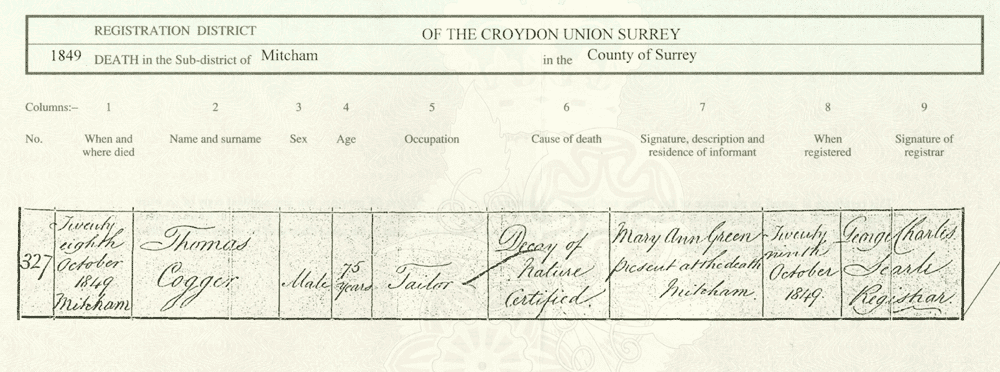 REGISTRATION DISTRICT OF THE CROYDON UNION SURREY
1849 DEATH in the Sub-district of Mitcham in the County of Surrey
Columns:– 1 2 3 4 5 6 7 8 9
No. When and where died Name and surname Sex Age Occupation Cause of death Signature, description and residence of informant When registered Signature of registrar
327
Twenty
eighth
October
1849
Mitcham
Thomas
Cogger
Male
75
years
Tailor
Decay of
Nature
Certified.
Mary Ann Green
present at the death
Mitcham.
Twenty
ninth
October
1849.
George Charles
Searle
Registrar.